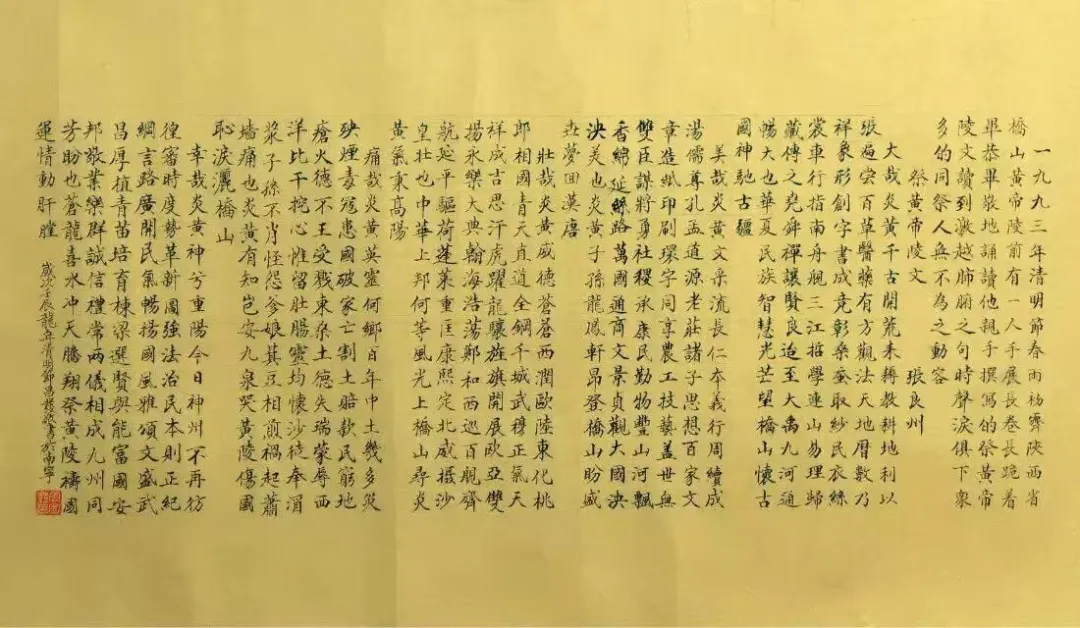 一九九三年清明節春雨初霽陝西省
橋山黄帝陵前有一人手展長卷長跪着
畢恭畢敬地誦讀他親手撰寫的祭黄帝
陵文讀到激越肺腑之句時聲淚俱下衆
多的同祭人無不為之動容
祭黄帝陵文 張良州
大哉炎黄千古開荒耒耨教耕地利以
張遍尝百草醫藥有方觀法天地曆數乃
祥象形創字書成竞彰桑蚕取紗民衣絲
裳車行指南舟舰三江哲學連山易理歸
藏傳之堯舜禪讓賢良迨至大禹九河通
暢大也華夏民族智慧光芒望橋山懷古
國神馳古疆
美哉炎黄文采流長仁本義行周續成
湯儒尊孔孟道源老莊諸子思想百家文
章造紙印刷環字同享農工技藝蓋世無
雙臣謀將勇社稷承康民勤物豐山河飄
香綿延絲路萬國通商文景貞觀大國泱
泱美也炎黄子孫龍鳳軒昂登橋山盼盛
世夢回漢唐
壯哉炎黄威德蒼蒼西潤歐陸東化桃
郎相國青天直道全鋼干城武穆正氣天
祥成吉思汗虎躍龍驤旌旗開展歐亞雙
揚永樂大典翰海浩蕩鄭和西巡百舰齊
航延平驅荷蓬莱重匡康熙定北威攝沙
皇壯也中華上邦何等風光上橋山尋炎
黄氣秉高陽
痛哉炎黄英靈何鄉百年中土幾多災
殃煙毒寇患國破家亡割土賠款民窮地
瘡火德不王受戮東桑土德失瑞蒙辱西
洋比干挖心惟留壯腸靈均懷沙徒奉湄
漿子孫不肖怪怨爹娘萁豆相煎禍起蕭
墻痛也炎黄有知岂安九泉哭黄陵傷國
恥淚灑橋山
幸哉炎黄神兮重陽今日神州不再彷
徨審時度勢革新圖強法治民本則正紀
綱言路廣開民氣暢揚國風雅頌文盛武
昌厚植青苗培育棟梁選賢與能富國安
邦敬業樂群誠信禮常兩儀相成九州同
芳盼也蒼龍喜水冲天騰翔祭黄陵禱國
運情動肝膛
歲次壬辰龍年清明鄧昌㦤書於南寧